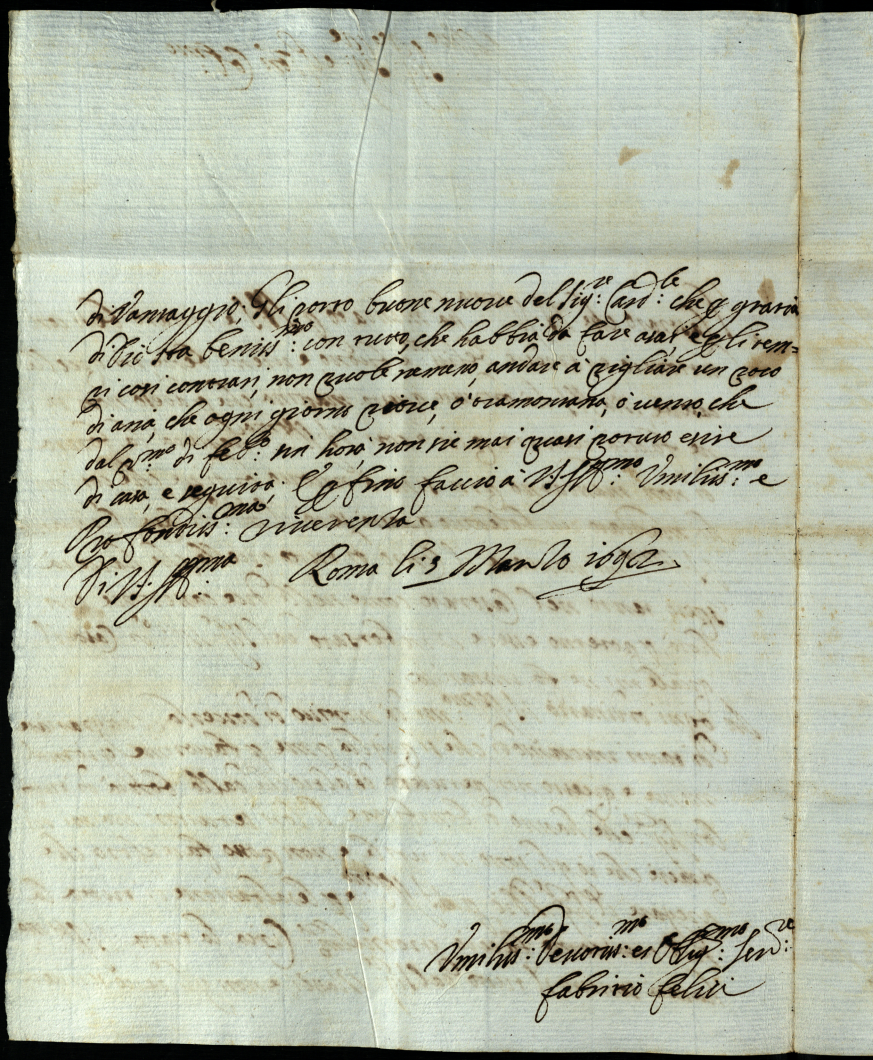 di Vantaggio. Gli porto buone nuove del Sig:re Card:le che p gratia
di Dio sta beniss:mo con tutto, che habbia da fare assai e gli tem=
pi così contrarj, non vuole andare à pigliare un poco
di aria, che ogni giorno piove, ò tramontana, ò vento, che
dal p:mo di feb:o sin hora non si è mai quasi potuto escire
di casa, e seguita. E p fine faccio à V:S:Ill:ma Umiliss:ma e
Profondiss:ma riverenza
Di V:S:Ill:ma Roma li 3 Marzo 1692
Umiliss:mo Devotiss:mo et Oblig:mo Ser:re
Fabritio Felici